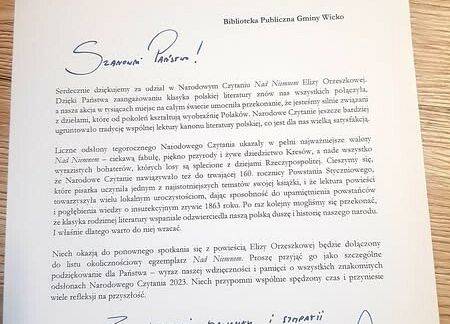 Biblioteka Publiczna Gminy Wicko
Szanowni Państwo!
Serdecznie dziękujemy za udział w Narodowym Czytaniu Nad Niemnem Elizy Orzeszkowej.
Dzięki Państwa zaangażowaniu klasyka polskiej literatury znów nas wszystkich połączyła,
a nasza akcja w tysiącach miejsc na całym świecie umocniła przekonanie, że jesteśmy silnie związani
z dziełami, które od pokoleń kształtują wyobraźnię Polaków. Narodowe Czytanie jeszcze bardziej
ugruntowało tradycję wspólnej lektury kanonu literatury polskiej, co jest dla nas wielką satysfakcją.
Liczne odsłony tegorocznego Narodowego Czytania ukazały w pełni najważniejsze walory
Nad Niemnem – ciekawą fabułę, piękno przyrody i żywe dziedzictwo Kresów, a nade wszystko
wyrazistych bohaterów, których losy są splecione z dziejami Rzeczypospolitej. Cieszymy się,
że Narodowe Czytanie nawiązywało też do trwającej 160. rocznicy Powstania Styczniowego,
które pisarka uczyniła jednym z najistotniejszych tematów swojej książki, i że lektura powieści
towarzyszyła wielu lokalnym uroczystościom, dając sposobność do upamiętnienia powstańców
i pogłębienia wiedzy o insurekcyjnym zrywie 1863 roku. Po raz kolejny mogliśmy się przekonać,
że klasyka rodzimej literatury wspaniale odzwierciedla naszą polską duszę i historię naszego narodu.
I właśnie dlatego warto do niej wracać.
Niech okazją do ponownego spotkania się z powieścią Elizy Orzeszkowej będzie dołączony
do listu okolicznościowy egzemplarz Nad Niemnem. Proszę przyjąć go jako szczególne
podziękowanie dla Państwa – wyraz naszej wdzięczności i pamięci o wszystkich znakomitych
odsłonach Narodowego Czytania 2023. Niech przypomni wspólnie spędzony czas i przyniesie
wiele refleksji na przyszłość.
i sympatii